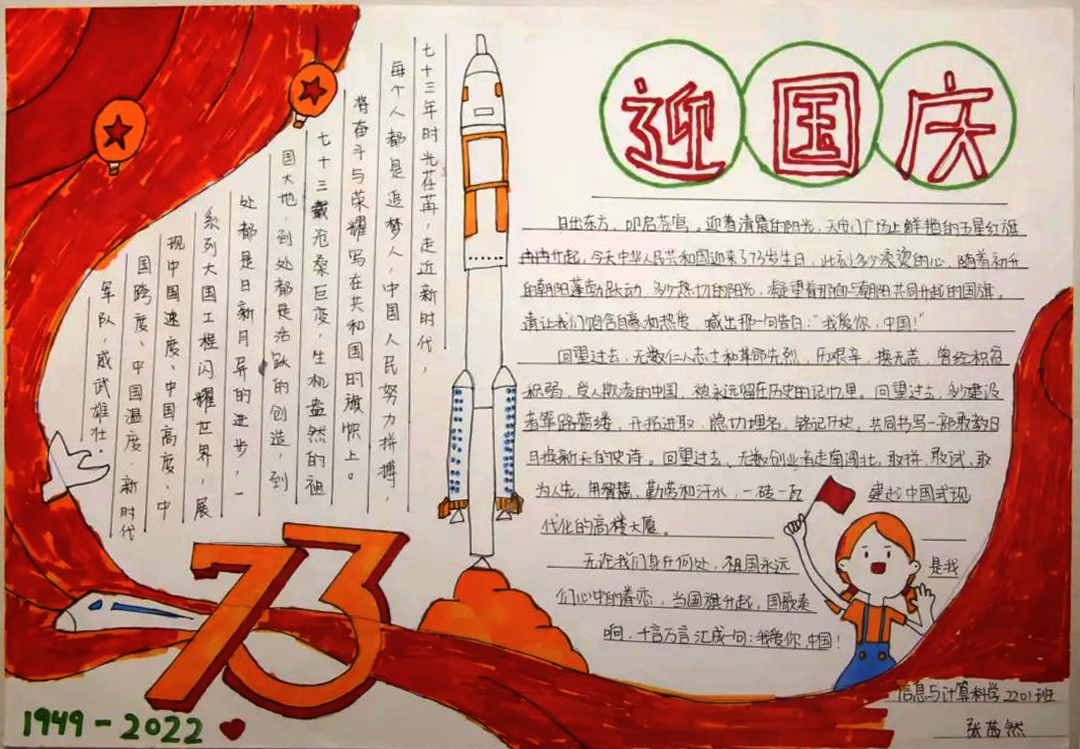 迎国庆
日出东方，叩启苍穹。迎着清晨的阳光，天安门广场上鲜艳的五星红旗
冉冉升起，今天中华人民共和国迎来了73岁生日，此刻多少滚烫的心，随着初升
的朝阳蓬勃跃动，多少热切的阳光，凝望着那面与朝阳共同升起的国旗。
请让我们饱含自豪和热爱，喊出那一句告白："我爱你，中国！"
回望过去，无数仁人志士和革命先烈，历艰辛，换无恙，曾经积贫
积弱，受人欺凌的中国，被永远留在历史的记忆里。回望过去，多少建设
者筚路蓝缕，开拓进取，隐功埋名，铭记历史。共同书写一部敢教日
月换新天的史诗。回望过去，无数创业者走南闯北，敢拼，敢试，敢
为人先，用智慧，勤劳和汗水，一砖一瓦 建起中国式现
代化的高楼大厦。
无论我们身在何处，祖国永远 是我
们心中的眷恋，当国旗升起，国歌奏
响，千言万言汇成一句：我爱你，中国！
七十三年时光荏苒，走近新时代，
每个人都是追梦人，中国人民努力拼搏，
将奋斗与荣耀写在共和国的旗帜上。
七十三载沧桑巨变，生机盎然的祖
国大地，到处都是活跃的创造，到
处都是日新月异的进步，一
系列大国工程闪耀世界，展
现中国速度、中国高度、中
国跨度、中国温度，新时代
军队，威武雄壮.
73
1949-2022
信息与计算科学2201班
张茜然